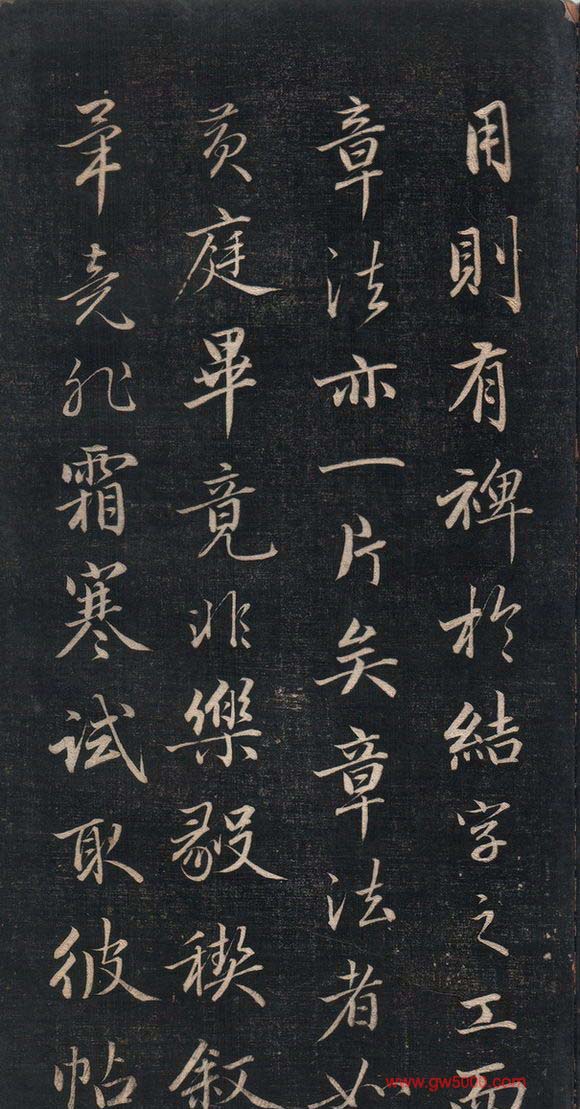 用則有裨於結字之工而
章法亦一片矣章法者如
黃庭畢竟非樂毅稧叙
筆竟非霜寒試取彼帖
www.gw500b.com